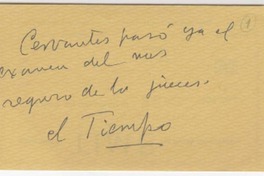 Cervantes pasó ya el
examen del mas
seguro de los jueces.
el Tiempo
1